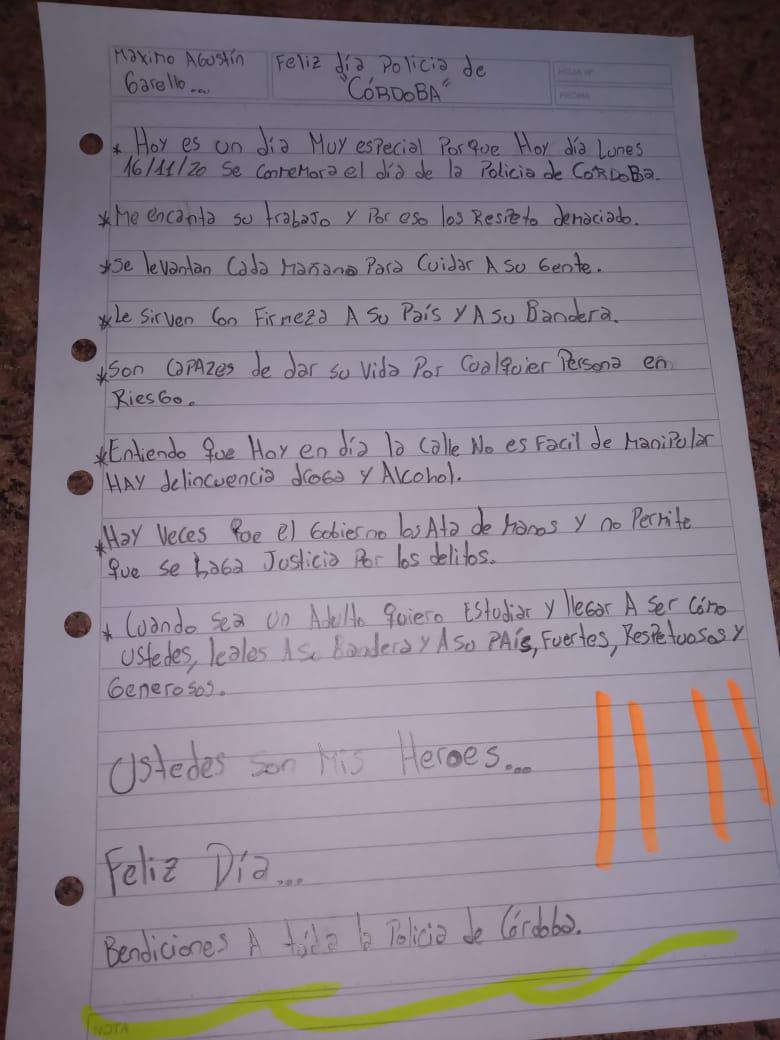 Maximo Agustín
Garello...
Feliz día Policia de
"CÓRDOBA"
HOJA Nº
FECHA
* Hoy es un día Muy especial Porque Hoy día Lunes
16/11/20 Se conmemora el día de la Policia de CORDOBA.
*Me encanta su trabajo y Por eso los Respeto demaciado.
*Se levantan Cada Mañana Para Cuidar A Su Gente.
*Le Sirven Con Firmeza A Su País y A Su Bandera.
*Son CAPAZes de dar su Vida Por Cualquier Persona en
Riesgo.
*Entiendo que Hoy en día la Calle No es Facil de Manipular
HAY delincuencia droga y Alcohol.
*Hay Veces que el Gobierno los Ata de Manos y no Permite
que se haga Justicia Por los delitos.
* Cuando sea un Adulto quiero Estudiar y llegar A ser Cómo
Ustedes, leales A su Bandera y A Su PAís, Fuertes, Respetuosos y
Generosos.
Ustedes Son Mis Heroes...
Feliz Día...
Bendiciones A tóda la Policia de Córdoba.
NOTA